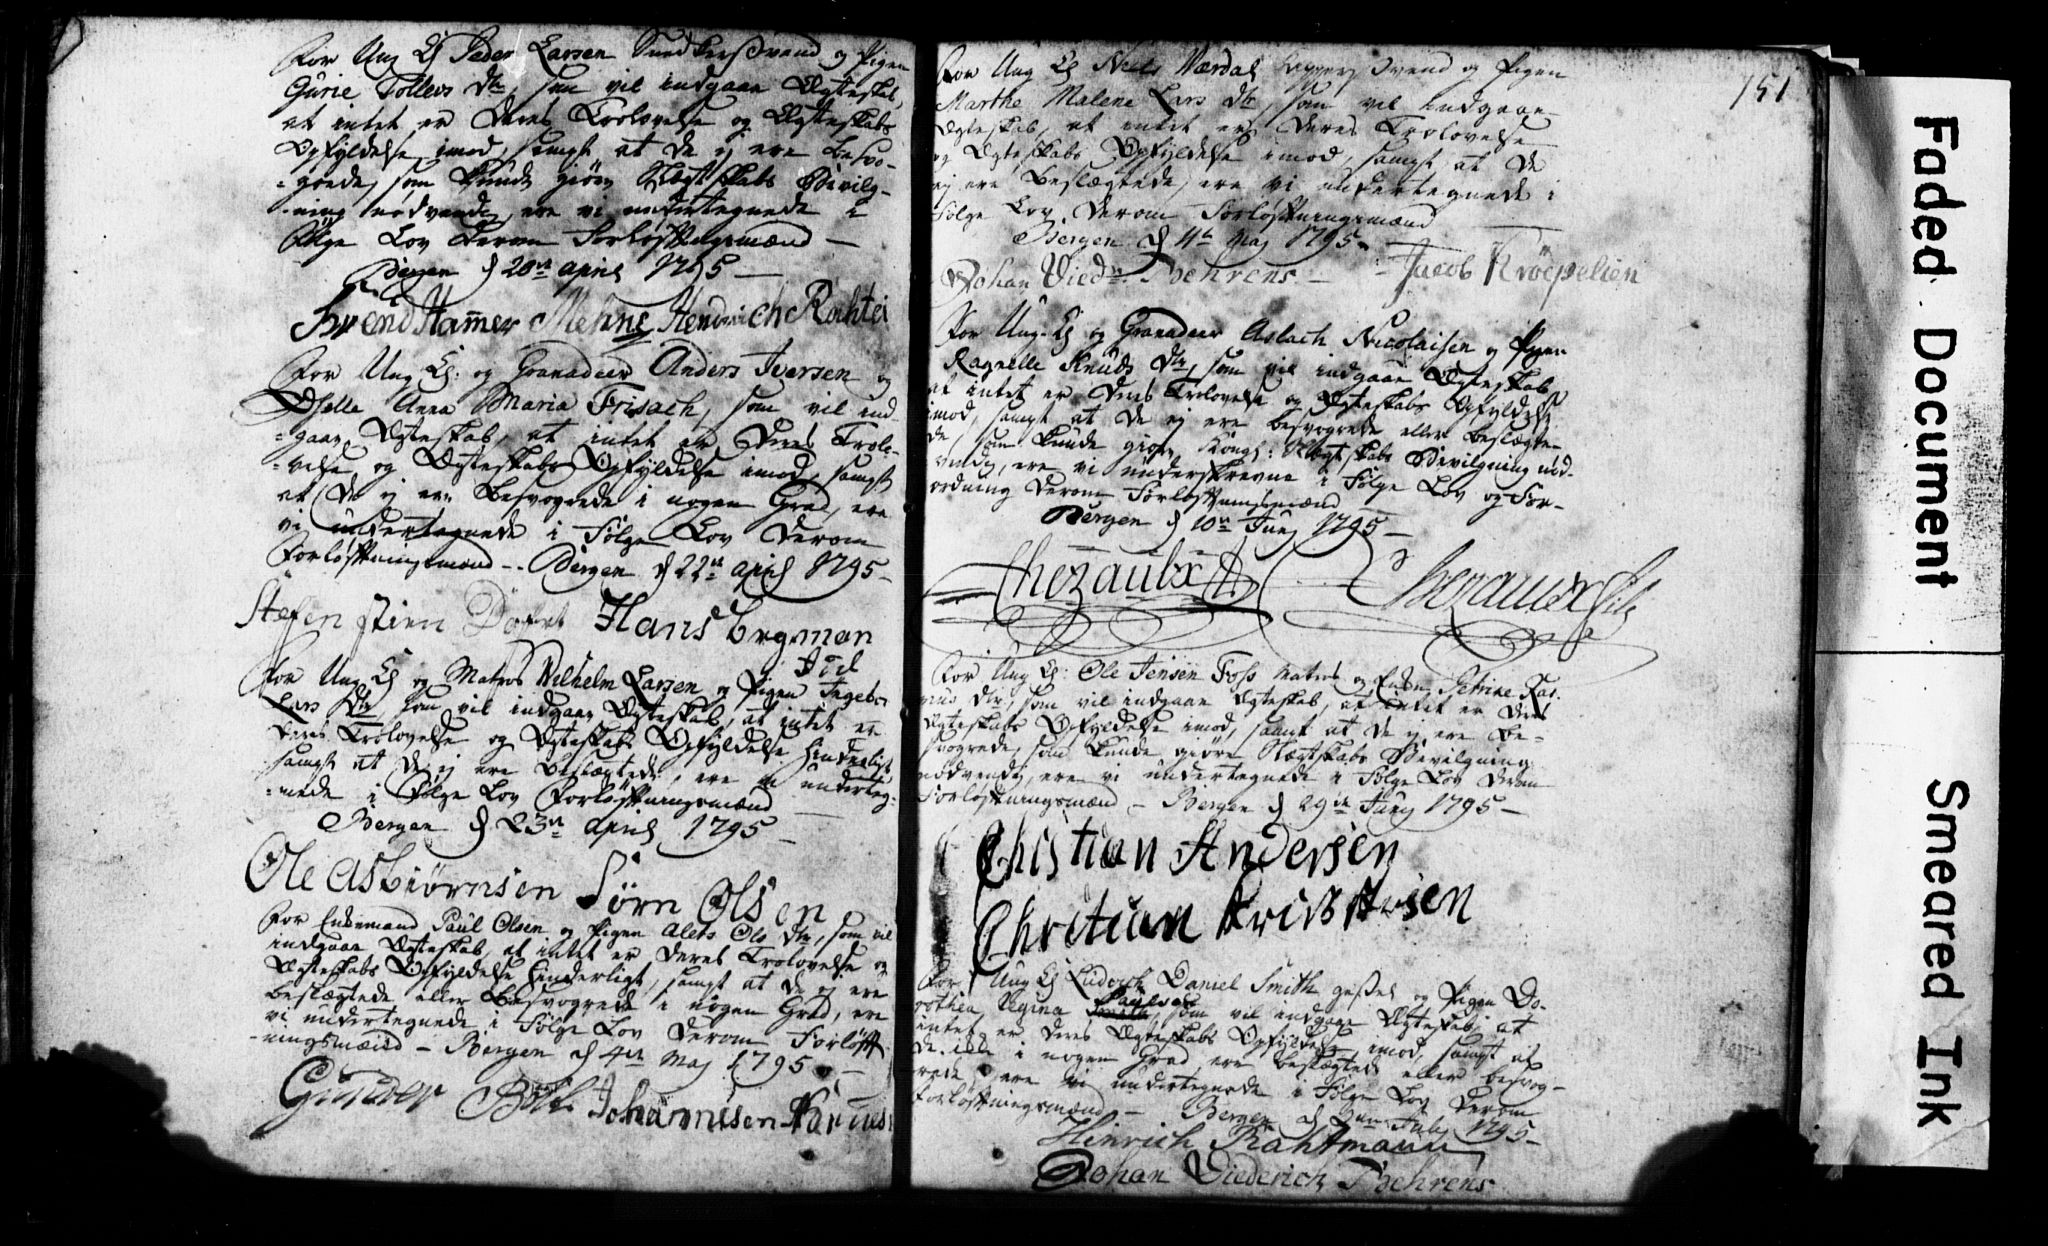 For Ung Ch Peder Larsen Snedkersvend og Pigen
Gurie Tollevs Dtr, som vil indgaae Ægteskab,
at intet er Deres Trolovelse og Ægteskabs
Opfyldelse imod, samt at de ej ere besvo-
=grede, som kunde giøre Slægtskabs Bevilg-
=ning nødvendig, ere vi undertegnede i
Følge Lov derom Forløftningsmænd —
Bergen d 20de April 1795 —
Svend Hammer Mehne Hendrich
For Ung Ch: og Granadeer Anders Iversen og
Anna Maria Frisach, som vil ind-
=gaae Ægteskab, at intet er Deres Trolo-
=velse og Ægteskabs Opfyldelse imod, samt
at De ej ere Besvogrede i nogen Grad, ere
vi undertegnede i Følge Lov derom
Forløftningsmænd — Bergen d 22de April 1795 —
Stefen Hans Bregman
For Ung Ch og Matros Wilhelm Larsen og Pigen Ingebor
Lars Dtr som vil indgaae Ægteskab, at intet er
Deres Trolovelse og Ægteskabs Opfyldelse hinderligt
samt at De ej ere beslægtede, ere vi underteg-
=nede i Følge Lov Forløftningsmænd —
Bergen d 23de April 1795 —
Ole Asbiørnsen Sørn Olsen
For Enkemand Paul Olsen og Pigen Alets Ols Dtr, som vil
indgaae Ægteskab, at intet er Deres Trolovelse og
Ægteskabs Opfyldelse hinderligt, samt at De ej ere
beslægtede eller Besvogrede i nogen Grad, ere
vi undertegnede i Følge Lov derom Forløft
=ningsmænd — Bergen d 4de Maj 1795 —
Johannisen
151
For Ung Ch Niels Wærdal svend og Pigen
Marthe Malene Lars Dtr, som vil indgaae
Ægteskab, at intet er Deres Trolovelse
og Ægteskabs Opfyldelse imod, samt at De
ej ere Beslægtede, ere vi undertegnede i
Følge Lov derom Forløftningsmænd
Bergen d 4de Maj 1795 —
Johan Diedr. Behrens — Jacob Kröepelien
For Ung Ch og Granadeer Aslach Nicolaisen og Pigen
Ragnelle Knuds Dtr, som vil indgaae Ægteskab,
at intet er Deres Trolovelse og Ægteskabs Opfyldelse
imod, samt at De ej ere besvogrede eller beslægte-
de, som kunde giøre Kongl: Slægtskabs Bevilgning nød-
vendig, ere vi underskrevne i Følge Lov og For-
ordning derom Forløftningsmænd —
Bergen d 10de Juny 1795 —
Chezaubx Chezaux fils
For Ung Ch: Ole Jensen Foss Matros og Enken Petrine Ras-
mus Dtr, som vil indgaae Ægteskab, at intet er Deres
Ægteskabs Opfyldelse imod, samt at De ej ere be=
svogrede, som kunde giøre Slægtskabs Bevilgning
nødvendig, ere vi undertegnede i Følge Lov derom
Forløftningsmænd — Bergen d 29de Juny 1795 —
Christian Andersen
Chritian
For Ung Ch Ludovich Daniel Smith og Pigen Do-
rothea Regina Paulsen, som vil indgaae Ægteskab, at
intet er Deres Ægteskabs Opfyldelse imod, samt at
De ikke i nogen Grad ere beslægtede eller besvog-
rede, ere vi undertegnede i Følge Lov derom
Forløftningsmænd — Bergen d July 1795 —
Hinrich Rahtmann
Johan Diederich Behrens
Faded Document
Smeared Ink